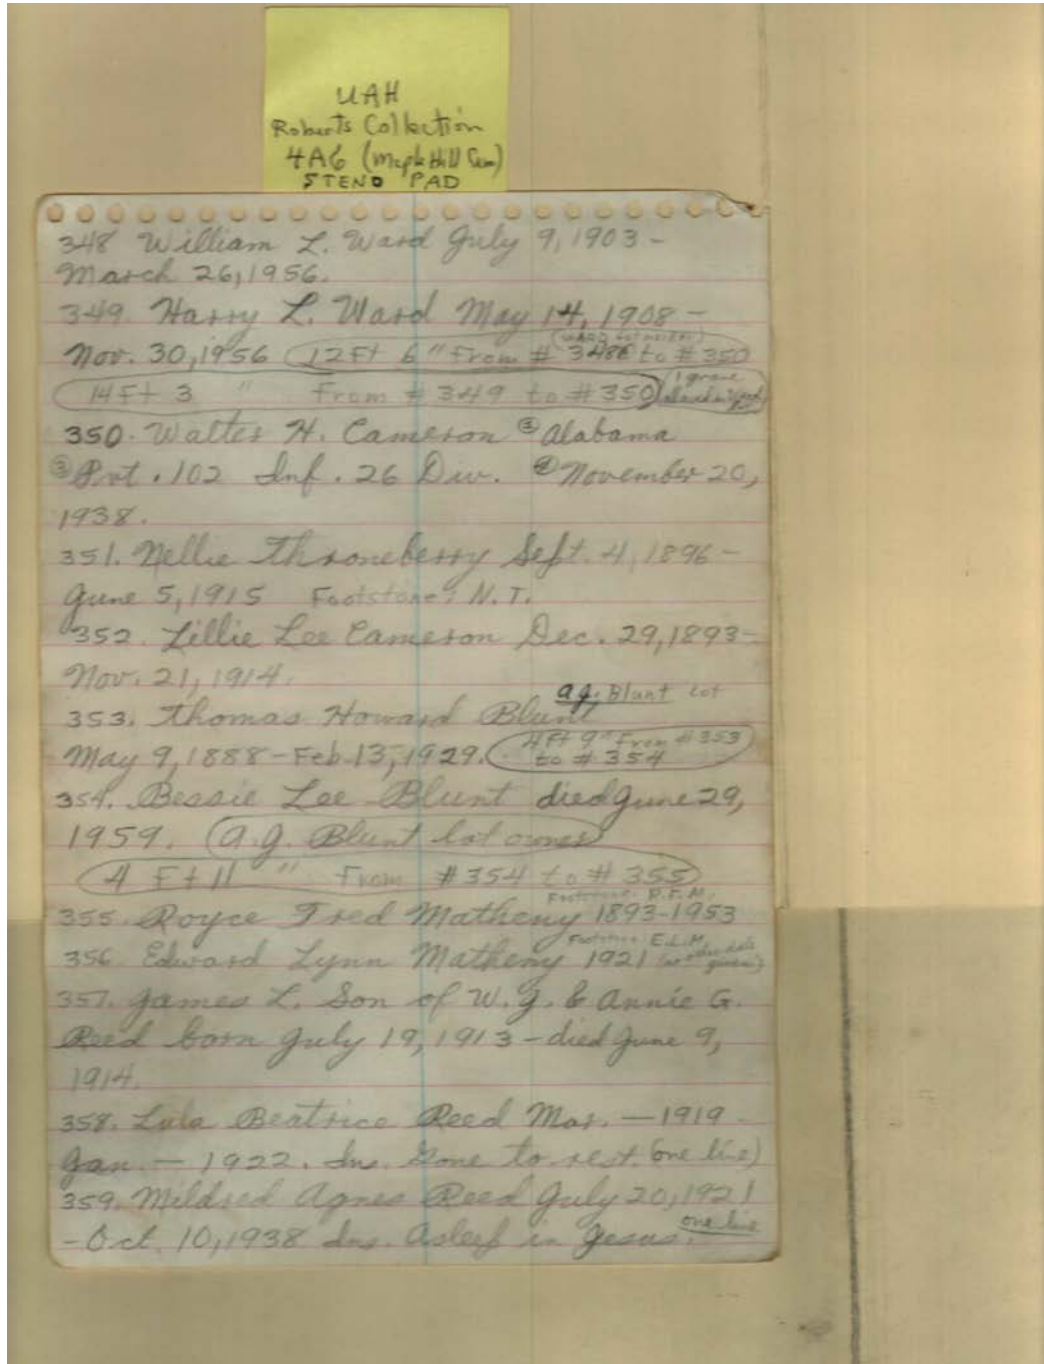 UAH
Roberts Collection
4A6 (Maple Hill Cem)
STENO PAD
348 William L. Ward July 9, 1903 -
March 26, 1956.
349. Harry L. Ward May 14, 1908 -
(WARD lot owner)
Nov. 30, 1956 (12 Ft 6 " From # 348 to # 350
14 Ft 3 " From # 349 to # 350) (1 grave
350. Walter H. Cameron ② Alabama
③ Pvt. 102 Inf. 26 Div. ④ November 20,
1938.
351. Nellie Throneberry Sept. 4, 1896 -
June 5, 1915 Footstone: N.T.
352. Lillie Lee Cameron Dec. 29, 1893 -
Nov. 21, 1914.
a.g. Blunt lot
353. Thomas Howard Blunt
May 9, 1888 - Feb. 13, 1929. (4 Ft 9" From # 353
to # 354
354. Bessie Lee Blunt died June 29,
1959. (a.g. Blunt lot owner)
(4 Ft 11 " From # 354 to # 355)
Footstone: R.F.M.
355. Royce Fred Matheny 1893-1953
Footstone: E.L.M.
356. Edward Lynn Matheny 1921 (no other date given)
357. James L. Son of W. J. & Annie G.
Reed born July 19, 1913 - died June 9,
1914.
358. Lula Beatrice Reed Mar. — 1919 -
Jan. — 1922. Ins. Gone to rest. (one line)
359. Mildred Agnes Reed July 20, 1921
- Oct. 10, 1938 Ins. Asleep in Jesus. one line